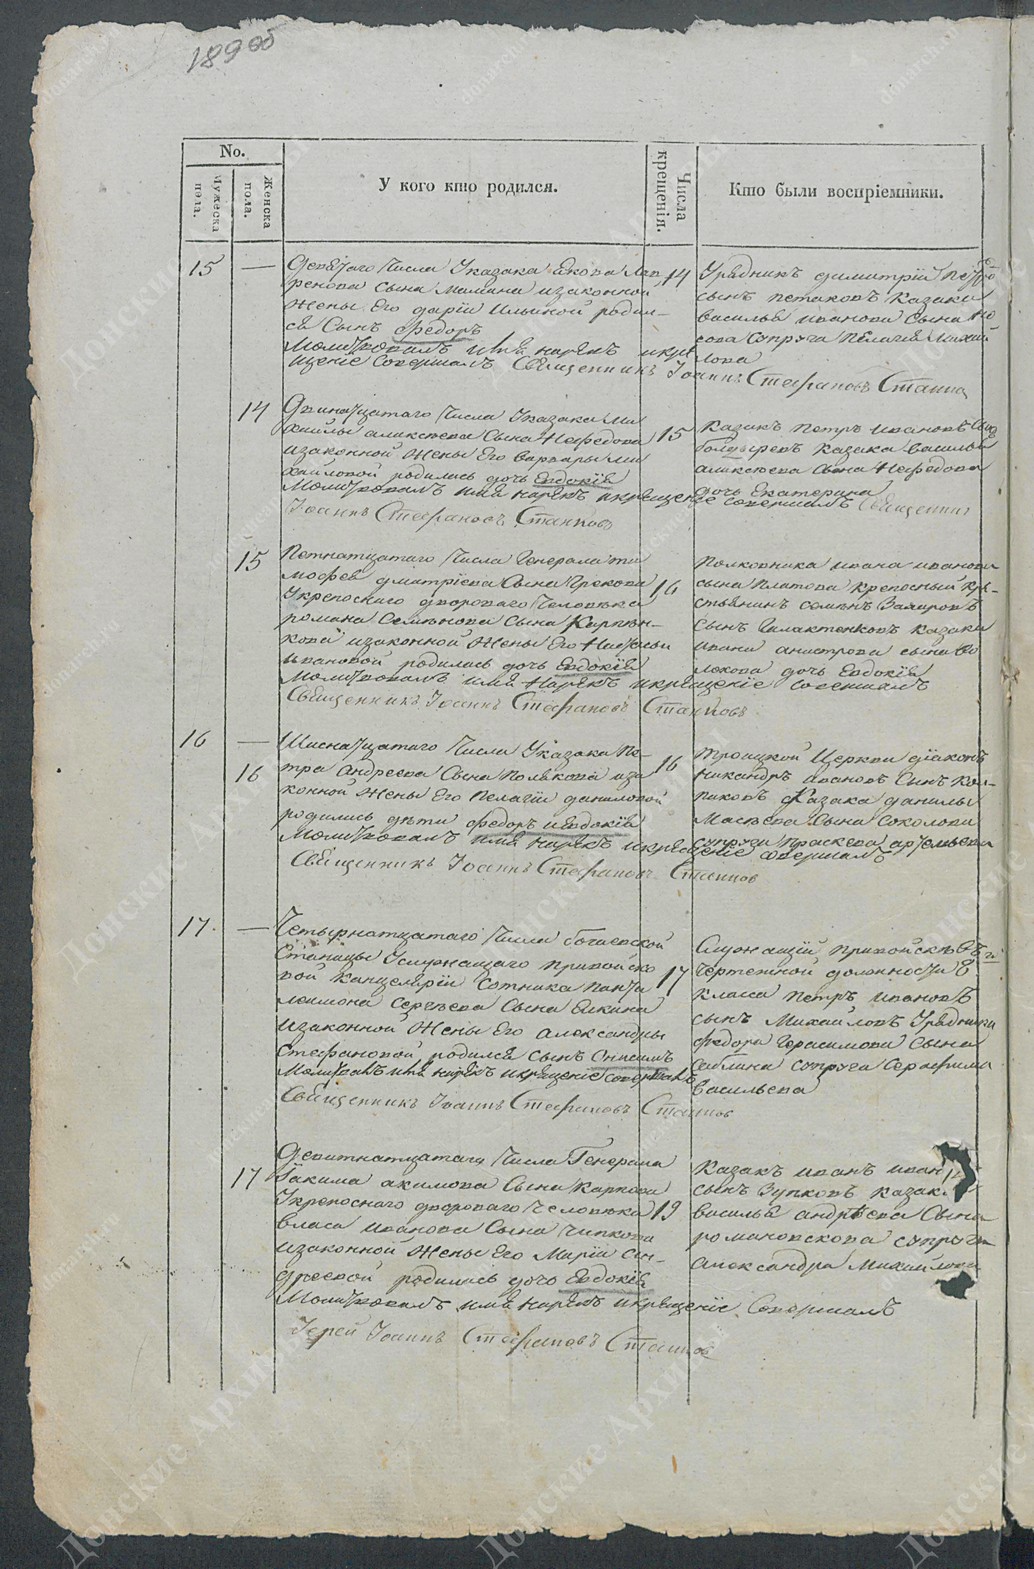 189 об
No.
Мужеска пола.
Женска пола.
У кого кто родился.
Числа крещенія.
Кто были воспріемники.
15 —
Девятаго Числа Указака Якова Лав
ренова Сына Мамина изаконной
Жены Его дарьи Ильиной родил-
ся Сынъ Федоръ
Молитвовалъ имя нарекъ икре
щеніе Совершалъ Священникъ Іоаннъ Стефановъ Станковъ
14
Урядникъ димитрій Петро
сынъ петаковъ Казака
василья иванова сына
сова супруга Пелагея Михай
лова
14
Двенатцатаго Числа Указака Ми
хайлы аликсеева Сына Нефедова
изаконной Жены Его варвары Ми
хайловой родилась дочь Евдокія
Молитвовалъ имя нарекъ икрещеніе совершалъ Священникъ
Іоаннъ Стефановъ Станковъ
15
Казакъ Петръ ивановъ Сынъ
болдыревъ казака василья
аликсеева сына Нефедова
дочь Екатерина
15
Петнатцатаго Числа Генерала ти
мофея дмитріева Сына Грекова
Укрепоснаго двороваго Человека
романа Семенова Сына Карпен-
кова изаконной Жены Его Натальи
ивановой родилась дочь Евдокія
Молитвовалъ имя Нарекъ икрещеніе совершалъ
Священникъ Іоаннъ Стефановъ Станковъ
16
Полковника ивана иванова
сына платова крепосный кре-
стьянинъ семенъ Захаровъ
сынъ Галактенковъ казака
ивана
лекова дочь Евдокія
16 —
16
Шиснатцатаго Числа Указака Пе-
тра андреева Сына Полякова иза
конной Жены Его пелагіи даниловой
родились дети Федоръ иевдокія
Молитвовалъ имя нарекъ икрещеніе совершалъ
Священникъ Іоаннъ Стефановъ Станковъ
16
троицкой Церкви діаконъ
никандръ ивановъ Сынъ Кол-
паковъ Казака данилы
Мосеева Сына Соколова
супруга Праскева артемьева
17. —
Четырнатцатаго Числа богаевской
Станицы Услужащаго привойско
вой канцеляріи Сотника панта
леимона Сергеева Сына Ежина
изаконной Жены Его александры
Стефановой родился сынъ Онисимъ
Молитвовалъ имя нарекъ икрещеніе совершалъ
Священникъ Іоаннъ Стефановъ Станковъ
17
Служащій привойсковой
Чертежной должности
класса петръ ивановъ
сынъ Михайловъ Урядника
федора Герасимова Сына
саблина супруга Серафима
васильева
17
Девитнатцатаго Числа Генерала
акима акимова Сына Карпова
Укрепоснаго двороваго человека
власа иванова Сына Чипкова
изаконной Жены Его Маріи ан-
дреевой родилась дочь Евдокія
Молитвовалъ имя нарекъ икрещеніе Совершалъ
Іерей Іоаннъ Стефановъ Станковъ
19
Казакъ иванъ иван
сынъ Зупковъ казака
василья андреева Сына
романовскова супруга
александра Михайлова